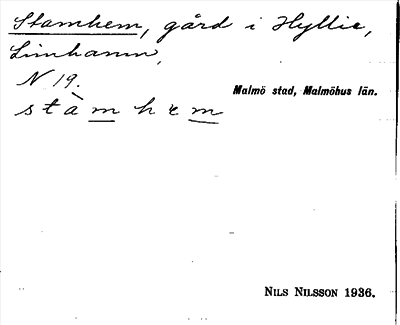 Stamhem, gård i Hyllie,
Limhamn,
N 19.
Malmö stad, Malmöhus län.
stàmhem
NILS NILSSON 1936.